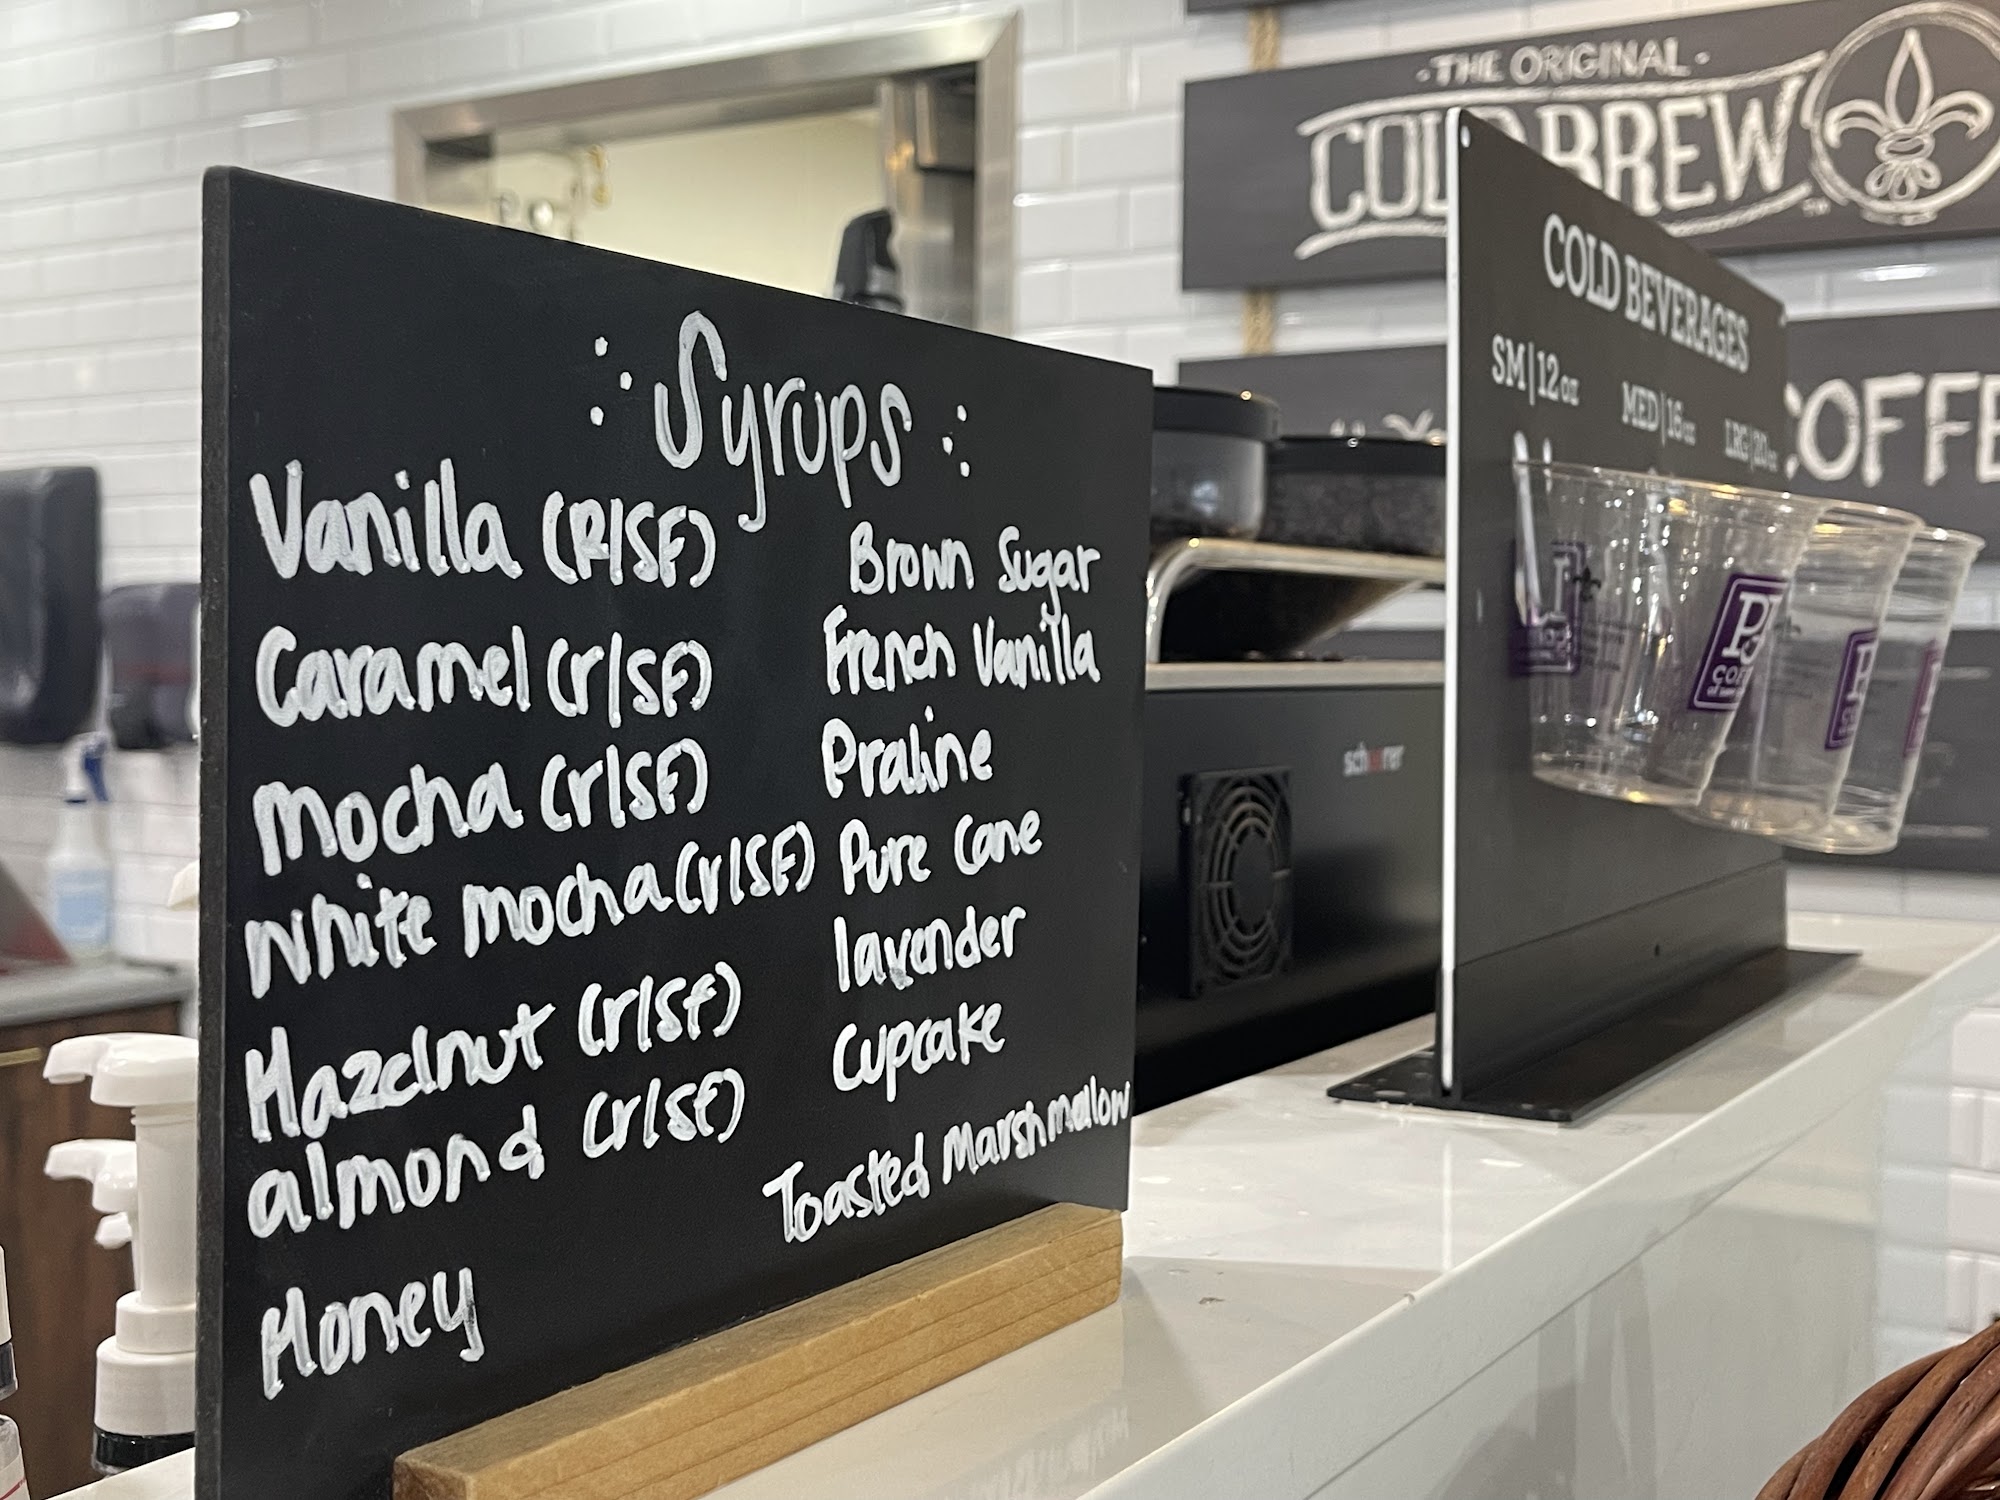 Syrups
Vanilla (R/SF)
Caramel (r/SF)
Mocha (r/SF)
White Mocha (r/SF)
Hazelnut (r/SF)
almond (r/SF)
Honey
Brown Sugar
French Vanilla
Praline
Pure Cane
lavender
Cupcake
Toasted Marshmallow
·THE ORIGINAL·
COLD BREW
TM
COLD BEVERAGES
SM|12oz
MED|16oz
LRG|20oz
COFFE
schaerer
PJ
COF